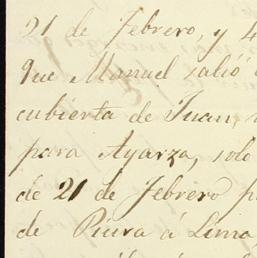 21 de Febrero, y
que Manuel salió
cubierta de Juan,
para Ayarza, solo
de 21 de Febrero
de Piura á Lima,